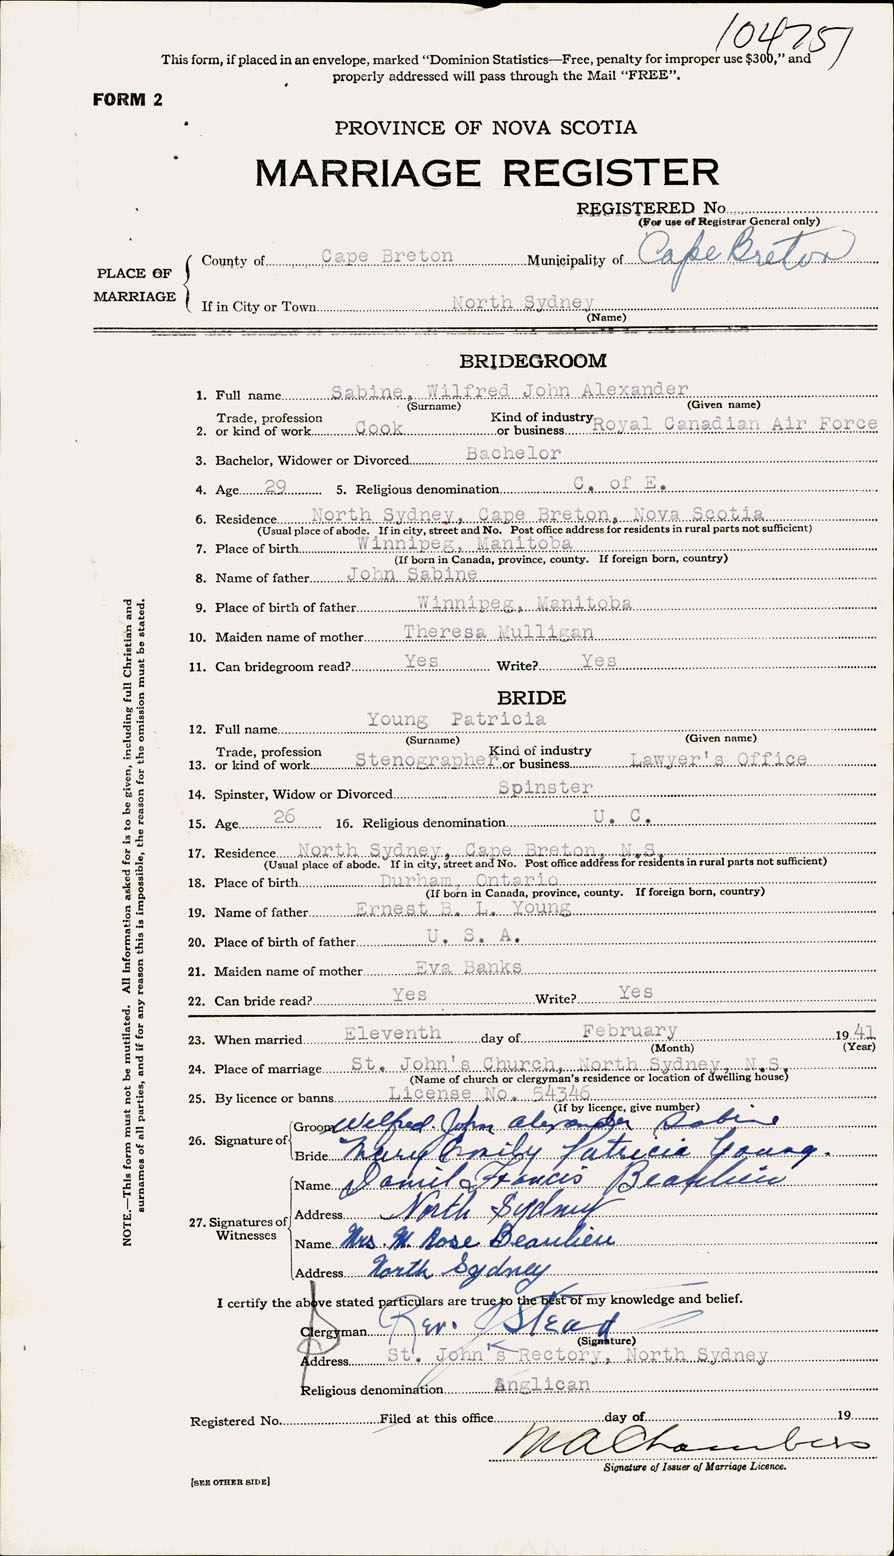 104751
This form, if placed in an envelope, marked "Dominion Statistics—Free, penalty for improper use $300," and
properly addressed will pass through the Mail "FREE".
FORM 2
PROVINCE OF NOVA SCOTIA
MARRIAGE REGISTER
REGISTERED No.
(For use of Registrar General only)
PLACE OF MARRIAGE
County of Cape Breton Municipality of Cape Breton
If in City or Town North Sydney
(Name)
BRIDEGROOM
1. Full name Sabine, Wilfred John Alexander
(Surname) (Given name)
2. Trade, profession or kind of work Cook Kind of industry or business Royal Canadian Air Force
3. Bachelor, Widower or Divorced Bachelor
4. Age 29 5. Religious denomination C. of E.
6. Residence North Sydney, Cape Breton, Nova Scotia
(Usual place of abode. If in city, street and No. Post office address for residents in rural parts not sufficient)
7. Place of birth Winnipeg, Manitoba
(If born in Canada, province, county. If foreign born, country)
8. Name of father John Sabine
9. Place of birth of father Winnipeg, Manitoba
10. Maiden name of mother Theresa Mulligan
11. Can bridegroom read? Yes Write? Yes
BRIDE
12. Full name Young Patricia
(Surname) (Given name)
13. Trade, profession or kind of work Stenographer Kind of industry or business Lawyer's Office
14. Spinster, Widow or Divorced Spinster
15. Age 26 16. Religious denomination U. C.
17. Residence North Sydney, Cape Breton, N.S.
(Usual place of abode. If in city, street and No. Post office address for residents in rural parts not sufficient)
18. Place of birth Durham, Ontario
(If born in Canada, province, county. If foreign born, country)
19. Name of father Ernest B. L. Young
20. Place of birth of father U. S. A.
21. Maiden name of mother Eva Banks
22. Can bride read? Yes Write? Yes
23. When married Eleventh day of February 1941
(Month) (Year)
24. Place of marriage St. John's Church, North Sydney, N.S.
(Name of church or clergyman's residence or location of dwelling house)
25. By licence or banns License No. 54346
(If by licence, give number)
26. Signature of Groom Wilfred John Alexander Sabine
Bride Mary Emily Patricia Young.
27. Signatures of Witnesses
Name Daniel Francis Beaulieu
Address North Sydney
Name Mrs. M. Rose Beaulieu
Address North Sydney
I certify the above stated particulars are true to the best of my knowledge and belief.
Clergyman Rev. J Stead
(Signature)
Address St. John's Rectory, North Sydney
Religious denomination Anglican
Registered No. Filed at this office day of 19
M A Chambers
Signature of Issuer of Marriage Licence.
[SEE OTHER SIDE]
NOTE.—This form must not be mutilated. All information asked for is to be given, including full Christian and
surnames of all parties, and if for any reason this is impossible, the reason for the omission must be stated.